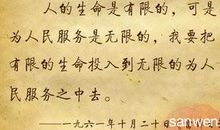 人的生命是有限的，可是
为人民服务是无限的，我要把
有限的生命投入到无限的为人
民服务之中去。
——一九六一年十月二十日
sanwen